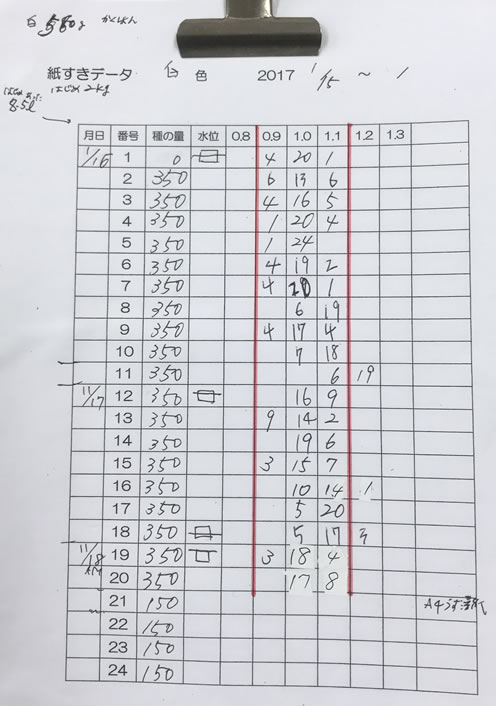 白 580g かくはん
紙すきデータ 白 色 2017 1/15 ~ 1/
はじめ 2kg
8.5l
月日 番号 種の量 水位 0.8 0.9 1.0 1.1 1.2 1.3
1/16 1 0 4 20 1
2 350 6 13 6
3 350 4 16 5
4 350 1 20 4
5 350 1 24
6 350 4 19 2
7 350 4 20 1
8 350 6 19
9 350 4 17 4
10 350 7 18
11 350 6 19
11/17 12 350 16 9
13 350 9 14 2
14 350 19 6
15 350 3 15 7
16 350 10 14 1
17 350 5 20
18 350 5 17 3
11/18 19 350 3 18 4
AM 20 350 17 8
21 150 A4うす
22 150
23 150
24 150